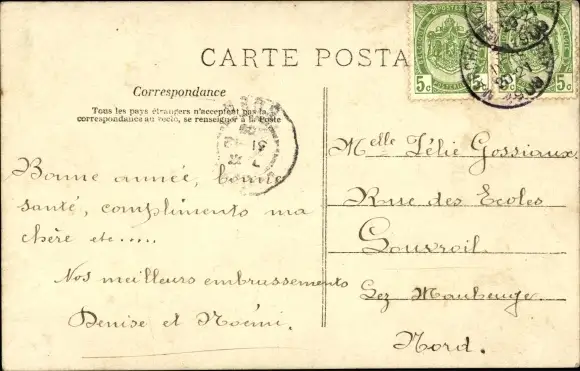 CARTE POSTA
Correspondance
Tous les pays étrangers n'acceptent pas la
correspondance au recto, se renseigner à la Poste
5c 5c
Bonne année, bonne
santé, compliments ma
chère etc.....
Nos meilleurs embrassements
Denise et Noémi.
Melle Zélie Gossiaux
Rue des Ecoles
Louvroil
Lez Maubeuge.
Nord.